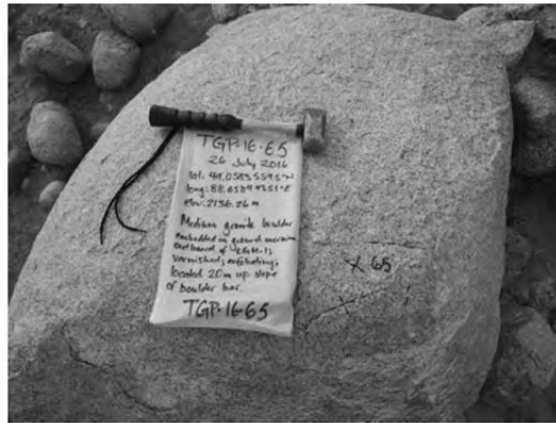 TGP-16-65
26 July 2016
lat: 49.0583559
long: 88.0589
elev: 2136.26 m
Medium granite boulder
embedded in ground moraine
outboard of
varnished; exfoliating;
located 20m up slope
of boulder bar.
TGP-16-65
X 65